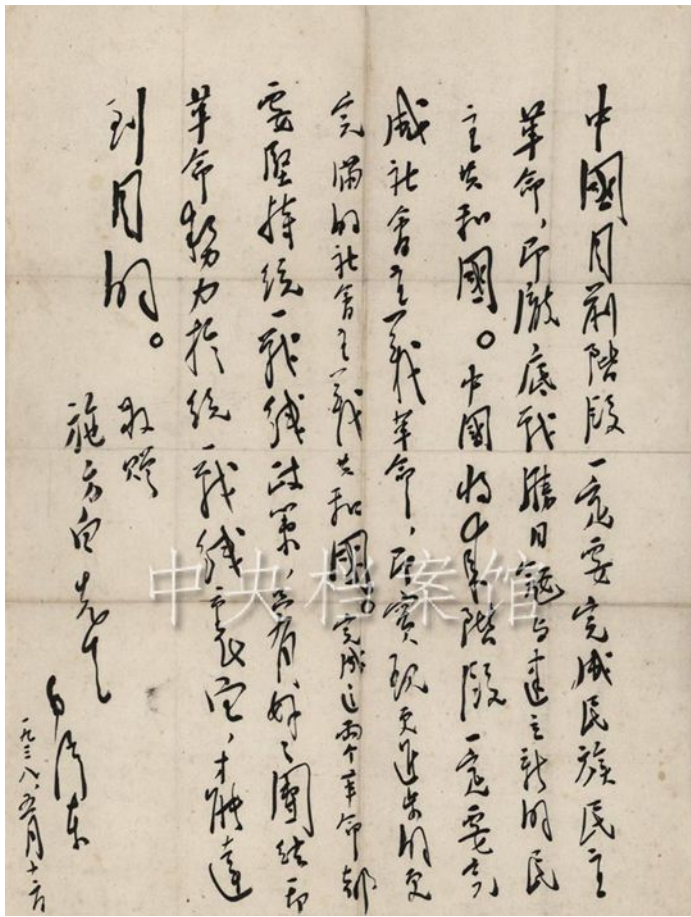 中國目前階段一定要完成民族民主
革命，即澈底戰勝日寇与建立新的民
主共和國。中國將來階段一定要完
成社會主義革命，即實現更進步的更
完滿的社會主義共和國。完成這兩个革命都
要堅持統一戰綫政策，只有好々團結一切
革命勢力於統一戰綫裏面，才能達
到目的。
敬贈
施方白先生
毛澤東
一九三八、五月十二日
中央档案馆